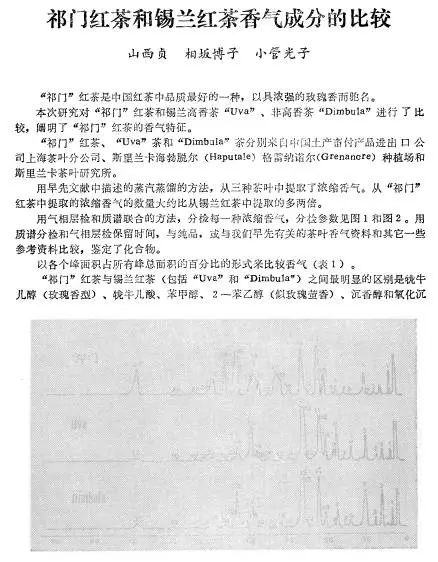 祁门红茶和锡兰红茶香气成分的比较
山西贞 相坂博子 小管光子
“祁门”红茶是中国红茶中品质最好的一种，以具浓强的玫瑰香而驰名。
本次研究对“祁门”红茶和锡兰高香茶“Uva”、非高香茶“Dimbula”进行了比
较，阐明了“祁门”红茶的香气特征。
“祁门”红茶、“Uva”茶和“Dimbula”茶分别来自中国土产畜付产品进出口公
司上海茶叶分公司、斯里兰卡海勃脱尔（Haputale）格雷纳诺尔（Grenanore）种植场和
斯里兰卡茶叶研究所。
用早先文献中描述的蒸汽蒸馏的方法，从三种茶叶中提取了浓缩香气。从“祁门”
红茶中提取的浓缩香气的数量大约比从锡兰红茶中提取的多两倍。
用气相层检和质谱联合的方法，分检每一种浓缩香气，分检参数见图1和图2。用
质谱分检和气相层检保留时间，与纯品，或与我们早先有关的茶叶香气资料和其它一些
参考资料比较，鉴定了化合物。
以各个峰面积占所有峰总面积的百分比的形式来比较香气（表1）。
“祁门”红茶与锡兰红茶（包括“Uva”和“Dimbula”）之间最明显的区别是牻牛
儿醇（玫瑰香型）、牻牛儿酸、苯甲醇、2—苯乙醇（似玫瑰萱香）、沉香醇和氧化沉